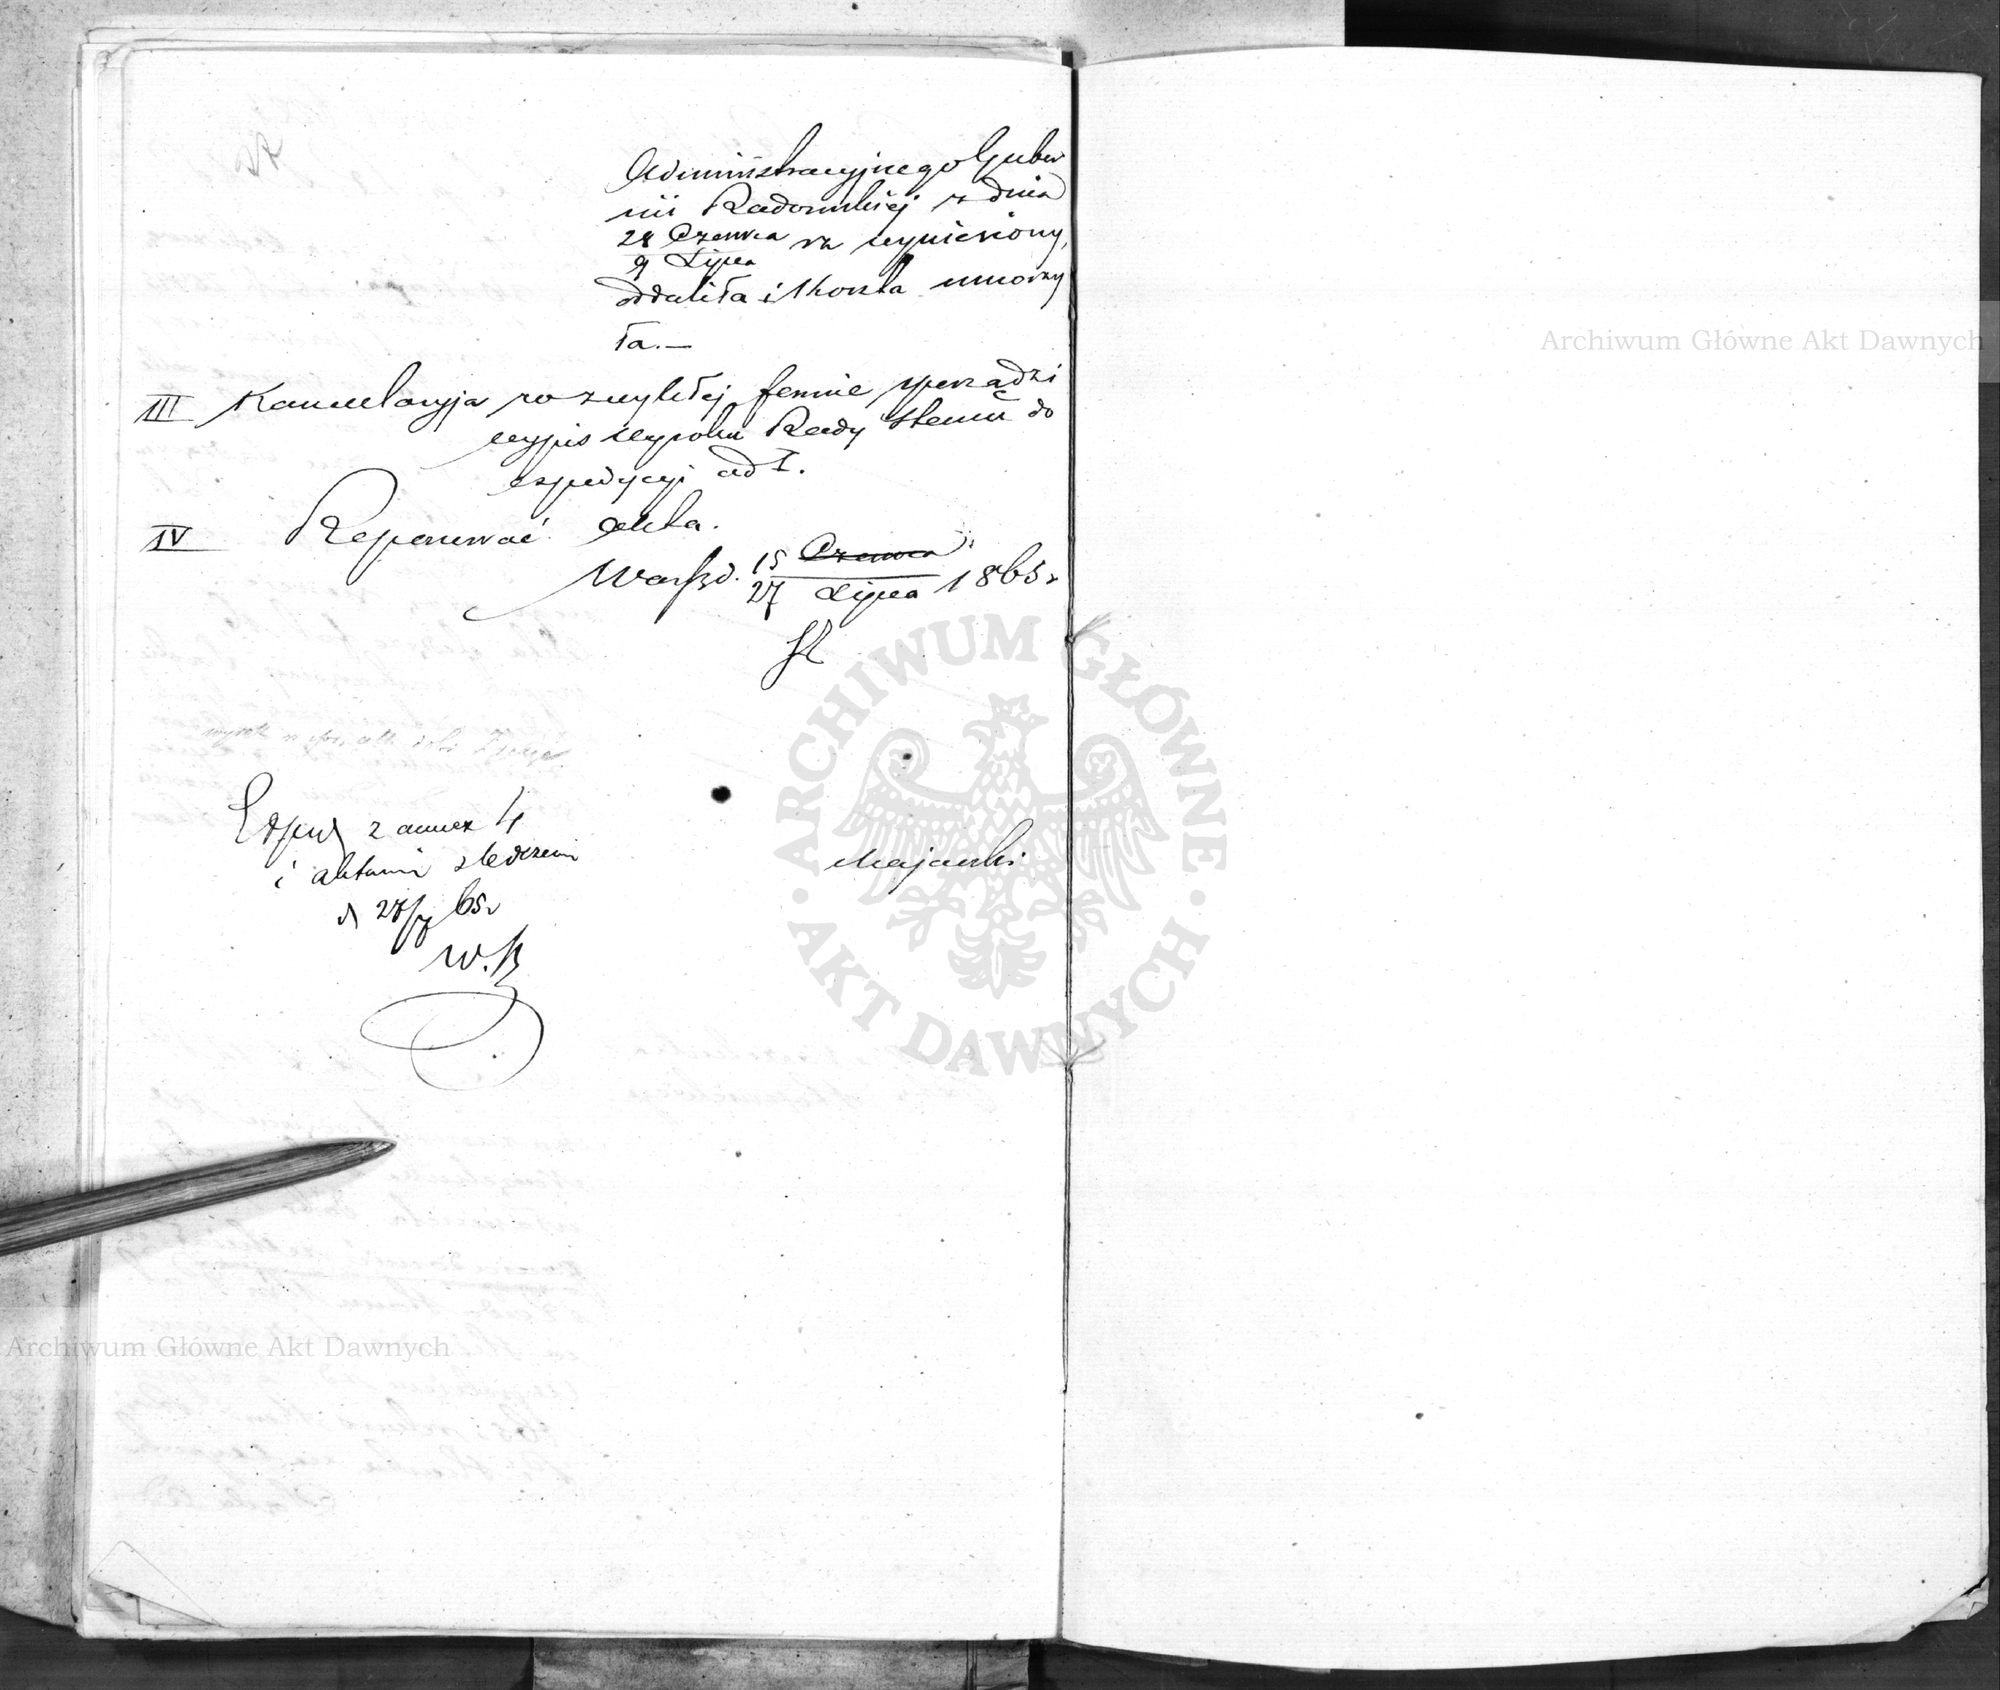 Administracyjnego Guber
nii Radomskiej z dnia
28 Czerwca
9 Lipca
rb wyniesiony,
oddaliła i koszta umorzy
ła.—
III Kancelaryja po zwykłej formie sporządzi
wypis wyroku Rady Stanu do
expedycyi ad I.
IV Reponować akta.
Warsz. d. 15 Czerwca
27 Lipca 1865 r
Exped z annex 4
i aktami śledczemi
d 27/7 65 r
W. B
Majewski
Archiwum Główne Akt Dawnych
ARCHIWUM GŁÓWNE AKT DAWNYCH
Archiwum Główne Akt Dawnych